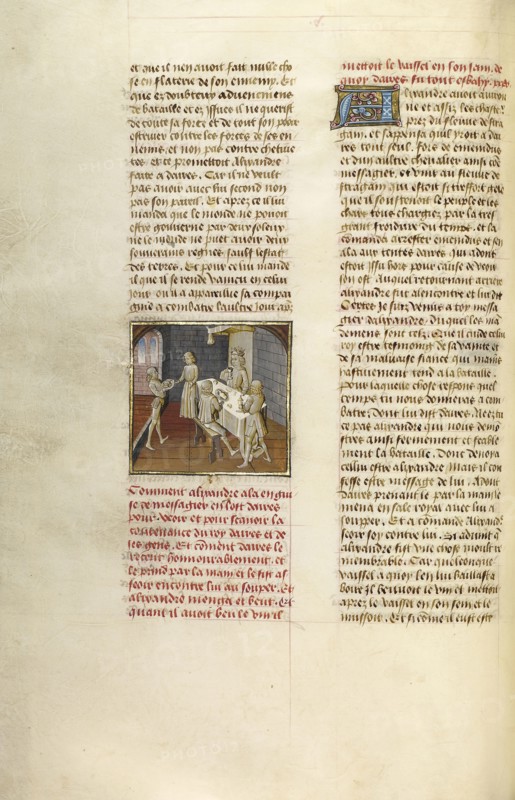 et que il n'en avoit fait nulle cho
se en flaterie de son ennemy. Et
que es doubteux advenemens
de bataille et es yssues il ne querist
de toute sa force et de tout son pooir
estriver contre les forces de ses en
nemis. et non pas contre chetive
tes et ce promettoit alixandre
faire a daires. Car il ne veult
pas avoir avec lui second non
pas son pareil. Et aprez ce il lui
manda que le monde ne pouoit
estre gouverne par deux soleux
ne le monde ne puet avoir deux
souverains regnes sauf l'estat
des terres. Et pour ce lui mande
il que il se rende vaincu en celui
jour. ou il a appareillie sa compai
gnie a combatre l'aultre jour aps
Comment alixandre ala en gui
se de messagier en l'ost daires
pour veoir et pour scavoir la
contenance du roy daires et de
ses gens. Et comment daires le
receut honnourablement. et
le prist par la main et le fist as
seoir encontre lui au souper. Et
alixandre menga et beut. Et
quant il avoit beu le vin il
mettoit le vaissel en son sain. de
quoy daires fu tout esbahy.
Alixandre avoit avironne
et assiz les chasteaux
prez du fleuve de stra
gam. et s'appensa qu'il yroit a dai
res tout seul. fors de emendus
et d'un aultre chevalier ainsi comme
messagier. et vint au fleuve de
stragam qui estoit si tresfort gele
que il soustenoit le peuple et les
chars tous chargiez par la tres
grant froidure du temps. et la
commanda arrester emendus et s'en
ala aux tentes daires qui adont
estoit issu hors pour cause de veoir
son ost. Auquel retournant arriere
alixandre fut a l'encontre et lui dist
Certes je suiz venus a toy messa
gier d'alixandre. Duquel les man
demens sont telz. Que il cuide celui
roy estre tesmoing de sa vanite et
de sa malvaise fiance qui mains
hastivement tend a la bataille.
Pour laquelle chose respons quel
temps tu nous donneras a com
batre. Dont lui dist daires. N'es tu
ce pas alixandre qui nous demo
stres ainsi fermement et feable
ment la bataille. Dont denoya
cellui estre alixandre mais il con
fesse estre message de lui. Adont
daires prenant le par la main le
mena en sale royal avec lui a
soupper. Et a commande alixandre
seoir soy contre lui. Si advint que
alixandre fist une chose moult re
membrable. Car quelconque
vaissel a quoy l'en lui baillast a
boire il bevoit le vin et mettoit
aprez le vaissel en son sein et le
mussoit. Et si comme il eust este